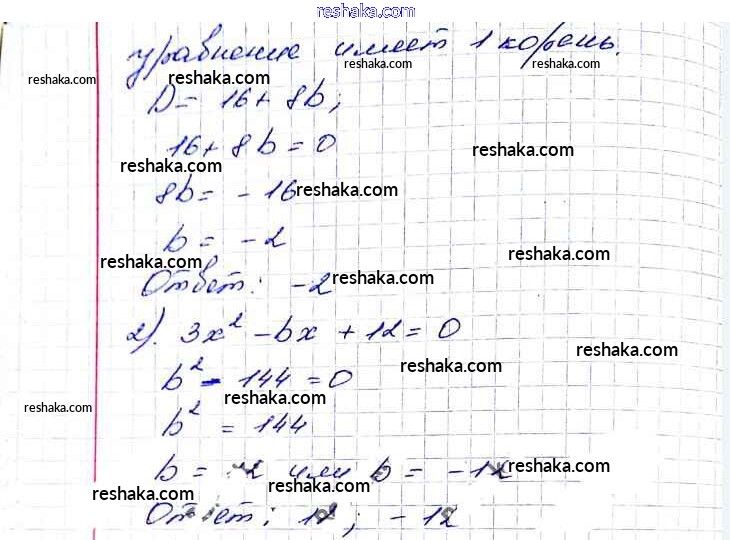 reshaka.com
уравнение имеет 1 корень.
reshaka.com reshaka.com reshaka.com reshaka.com
D = 16 + 8b;
16 + 8b = 0
reshaka.com reshaka.com
8b = - 16
reshaka.com
b = - 2
reshaka.com reshaka.com
Ответ: -2
reshaka.com
2). 3x² - bx + 12 = 0
reshaka.com
b² - 144 = 0
reshaka.com
reshaka.com reshaka.com
b² = 144
b = 12 или b = - 12
reshaka.com
reshaka.com reshaka.com
Ответ: 12; - 12